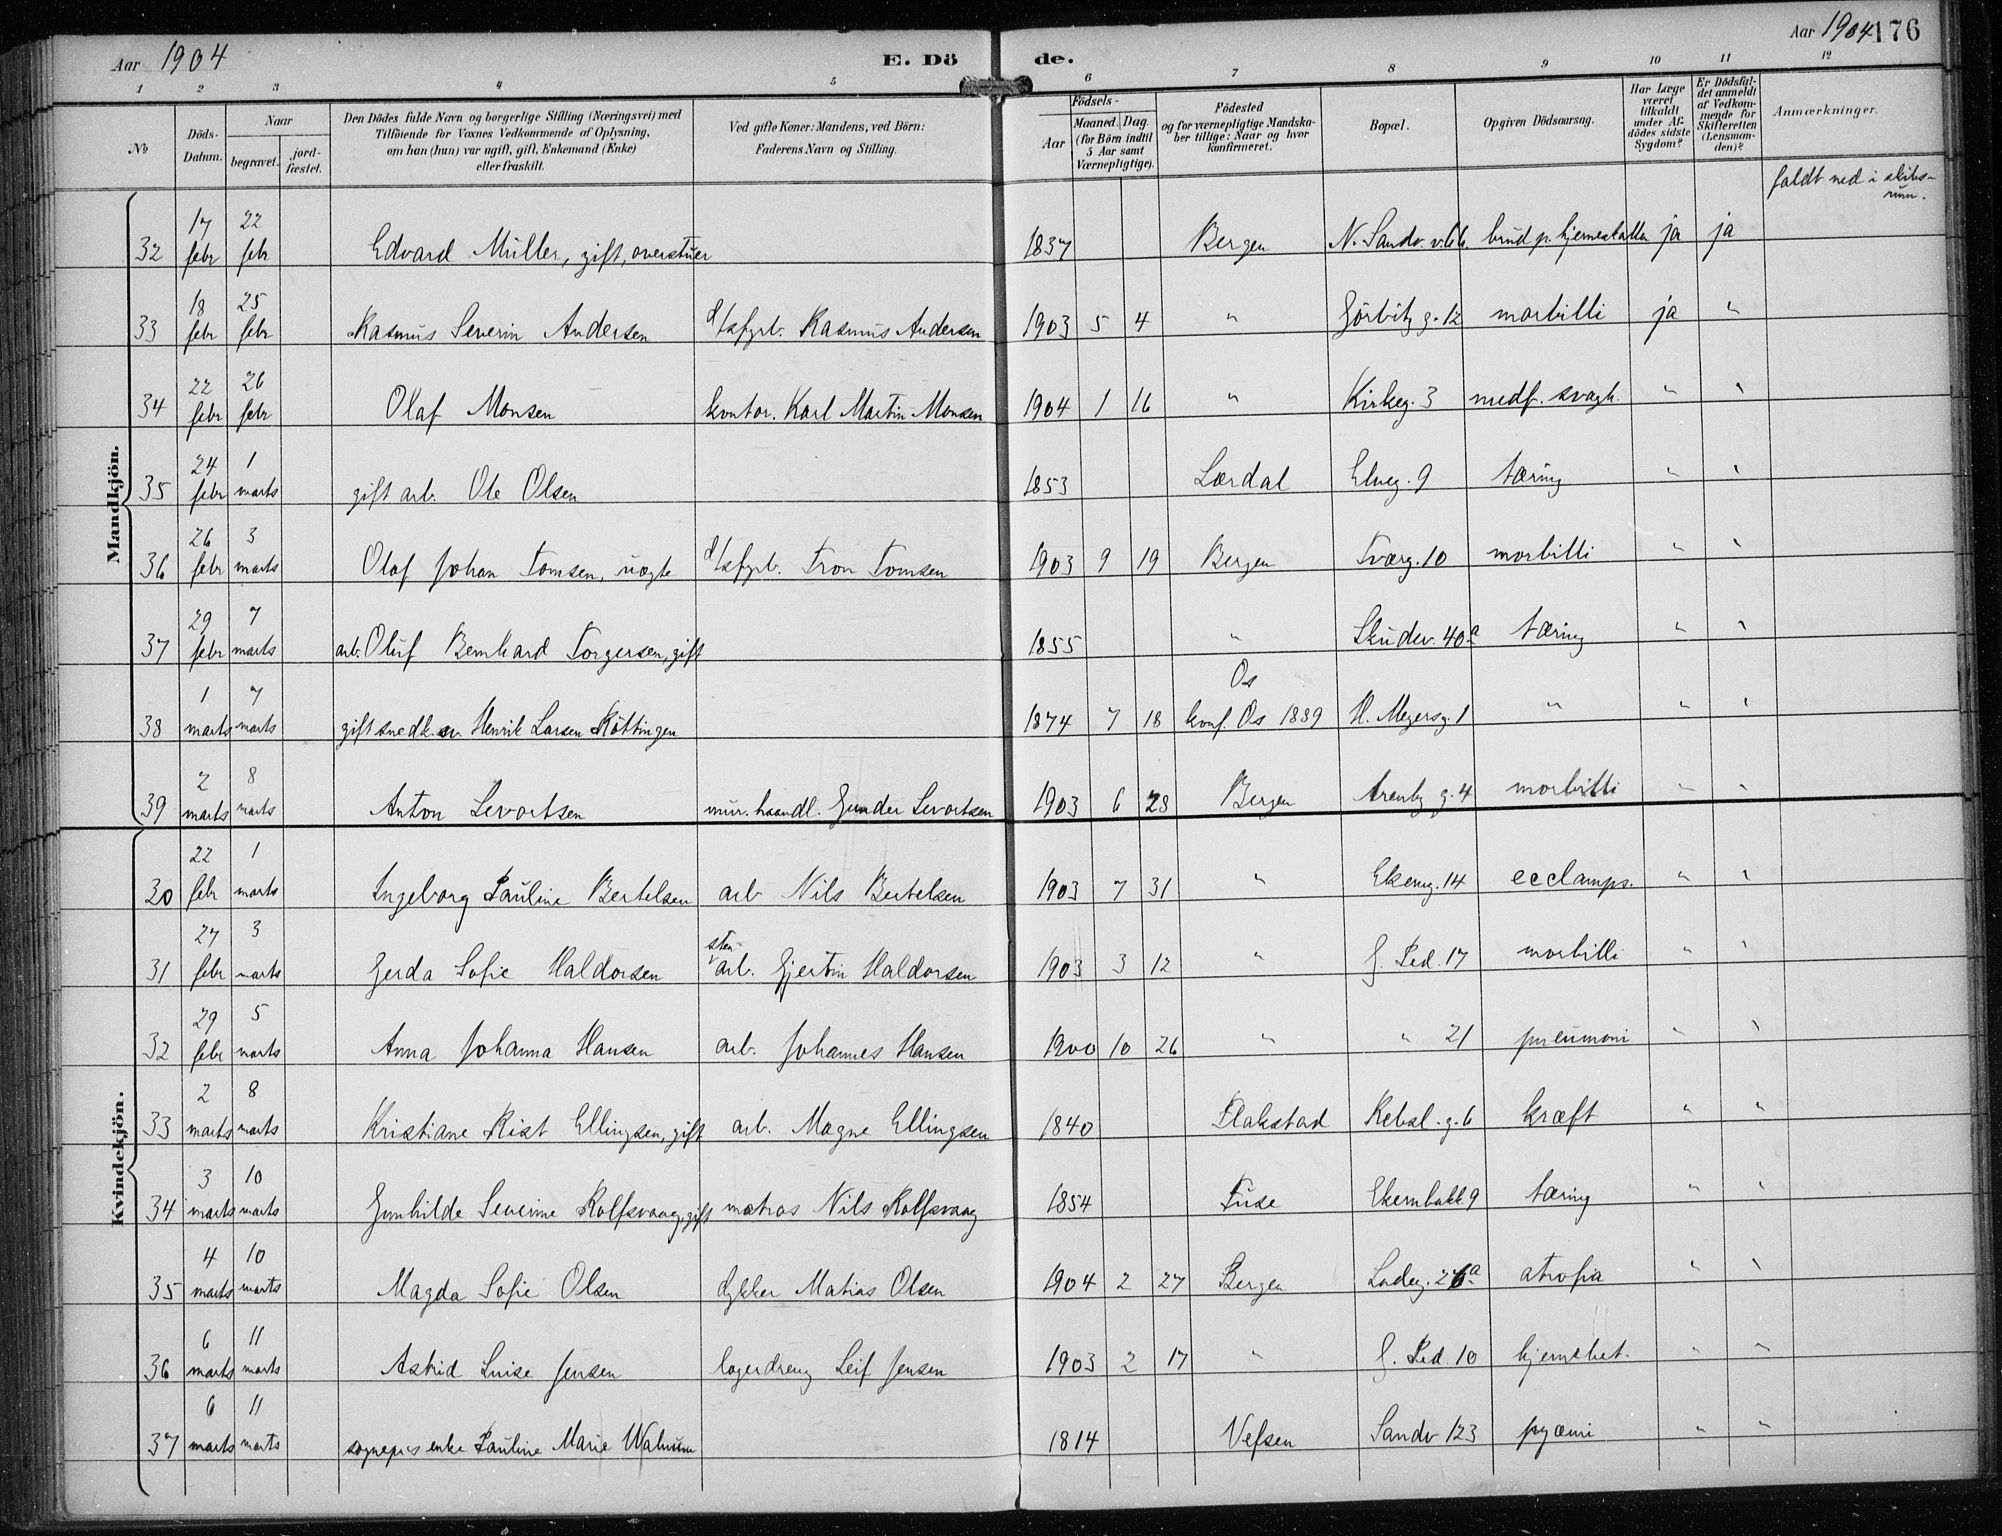 Aar 1904 E. Dö de. Aar 1904 176
1 2 3 4 5 6 7 8 9 10 11 12
No
Döds-Datum.
Naar begravet. jordfæstet.
Den Dödes fulde Navn og borgerlige Stilling (Næringsvei) med
Tilföiende for Voxnes Vedkommende af Oplysning,
om han (hun) var ugift, gift, Enkemand (Enke)
eller fraskilt.
Ved gifte Koner: Mandens, ved Börn:
Faderens Navn og Stilling.
Födsels-
Aar Maaned. Dag.
(for Börn indtil
5 Aar samt
Værnepligtige).
Födested
og for værnepligtige Mandska-
ber tillige: Naar og hvor
konfirmeret.
Bopæl.
Opgiven Dödsaarsag.
Har Læge
været
tilkaldt
under Af-
dödes sidste
Sygdom?
Er Dödsfal-
det anmeldt
af Vedkom-
mende for
Skifteretten
(Lensman-
den)?
Anmærkninger.
Mandkjön.
faldt ned i skibs-
rum.
32 17 febr 22 febr Edvard Müller, gift, overstuer 1837 Bergen N. Sandv. v. 66 brud p. hjerneskallen ja ja
33 18 febr 25 febr Rasmus Severin Andersen d/sfyrb. Rasmus Andersen 1903 5 4 " Görbitz g. 12 morbilli ja "
34 22 febr 26 febr Olaf Monsen kontor. Karl Martin Monsen 1904 1 16 " Kirkeg. 3 medf. svagh. " "
35 24 febr 1 marts gift arb. Ole Olsen 1853 Lærdal Elveg. 9 tæring " "
36 26 febr 3 marts Olaf Johan Tomsen, uægte d/sfyrb. Tron Tomsen 1903 9 19 Bergen Tværg. 10 morbilli " "
37 29 febr 7 marts arb. Oluf Bernhard Torgersen, gift 1855 " Skudev. 40a tæring " "
38 1 marts 7 marts gift snedk.sv. Henrik Larsen Röttingen 1874 7 18 Os konf. Os 1889 H. Meyersg. 1 " " "
39 2 marts 8 marts Anton Sevortsen mur. haandl. Gunder Sevortsen 1903 6 28 Bergen Arentz g. 4 morbilli " "
Kvindekjön.
30 22 febr 1 marts Ingeborg Pauline Bertelsen arb Nils Bertelsen 1903 7 31 " Ekeng. 14 ecclamps. " "
31 27 febr 3 marts Gerda Sofie Haldorsen sten-arb. Gjertin Haldorsen 1903 3 12 " J. Péd. 17 morbilli " "
32 29 febr 5 marts Anna Johanna Hansen arb. Johannes Hansen 1900 10 26 " " 21 pneumoni " "
33 2 marts 8 marts Kristiane Rist Ellingsen, gift arb. Magne Ellingsen 1840 Flakstad Rebsl. g. 6 kræft " "
34 3 marts 10 marts Gunhilde Severine Rolfsvaag, gift matros Nils Rolfsvaag 1854 Fuse Ekernbakk 9 tæring " "
35 4 marts 10 marts Magda Sofie Olsen dykker Matias Olsen 1904 2 27 Bergen Ladeg. 26a atrofia " "
36 6 marts 11 marts Astrid Luise Jensen lagerdreng Leif Jensen 1903 2 17 " J. Péd. 10 hjernebet. " "
37 6 marts 11 marts sognepr.s enke Pauline Marie Walnum 1814 Vefsen Sandv 123 pyæmi " "